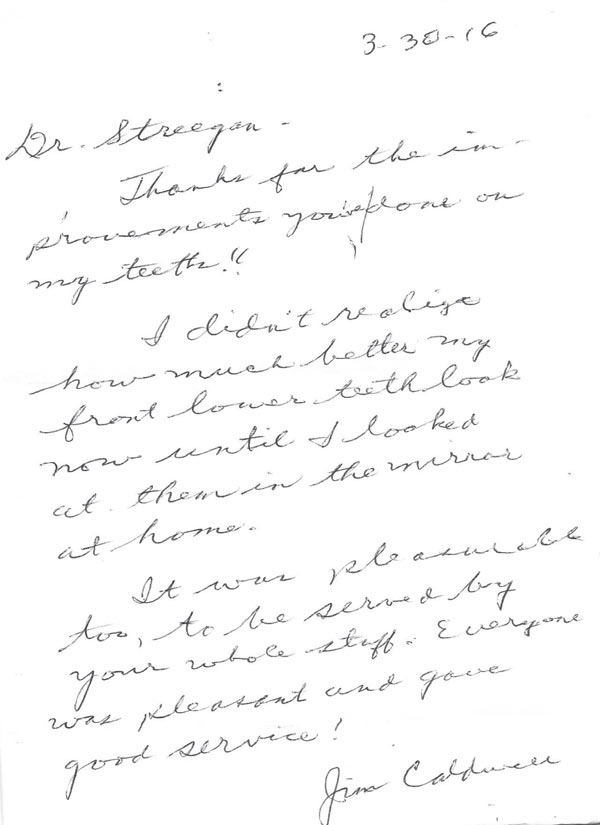 3-30-16
Dr. Streegan -
Thanks for the im-
provements you've done on
my teeth!!
I didn't realize
how much better my
front lower teeth look
now until I looked
at them in the mirror
at home.
It was pleasurable
too, to be served by
your whole staff. Everyone
was pleasant and gave
good service!
Jim Caldwell